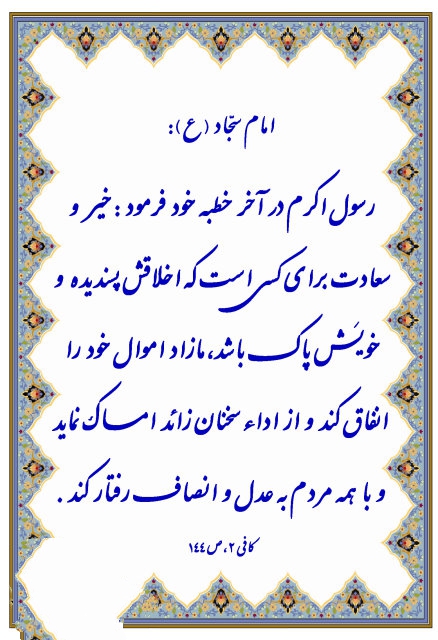 امام سجّاد (ع):
رسول اکرم در آخر خطبه خود فرمود: خیر و
سعادت برای کسی است که اخلاقش پسندیده و
خویَش پاک باشد، مازاد اموال خود را
انفاق کند و از اداء سخنان زائد امساک نماید
و با همه مردم به عدل و انصاف رفتار کند.
کافی ۲، ص ۱٤٤